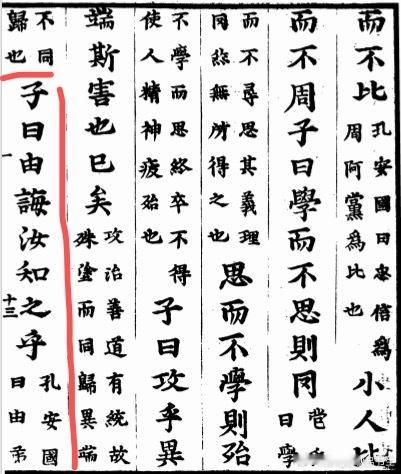 而不比孔安國曰忠信爲周阿黨爲比也小人比
而不周子曰學而不思則罔包氏曰學
而不尋思其義理罔然無所得之也思而不學則殆
不學而思終卒不得使人精神疲殆也子曰攻乎異
端斯害也已矣攻治善道有統故殊塗而同歸異端
不同歸也子曰由誨汝知之乎孔安國曰由弟
一
十三